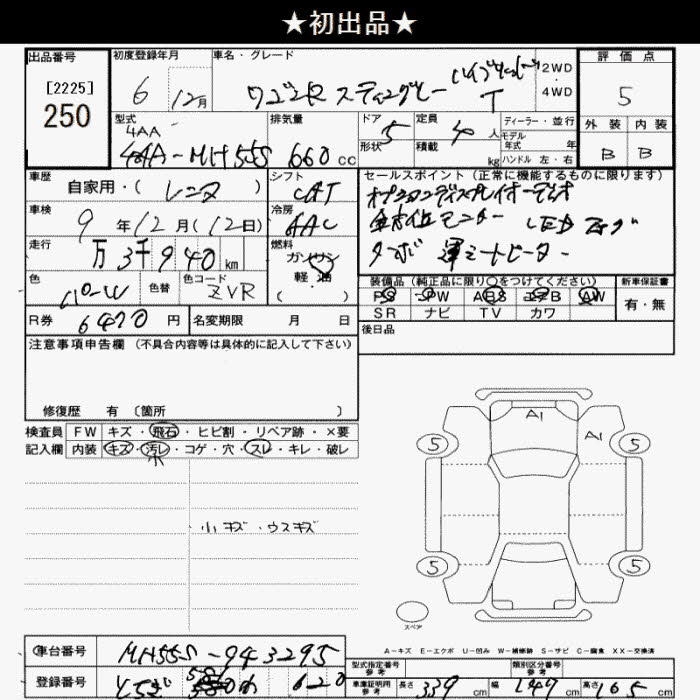 ★初出品★
出品番号
[2225]
250
初度登録年月
6 12月
車名・グレード
ワゴンR スティングレー ハイブリッド T
2WD
4WD
評価点
5
外装 内装
B B
型式
4AA-
4AA-MH55S
排気量
660 cc
ドア 5
形状
定員 4 人
積載 kg
ディーラー・並行
モデル年式 年
ハンドル 左・右
車歴
自家用・( レンタ )
シフト
CAT
セールスポイント (正常に機能するものに限ります)
オプションディスプレイオーディオ
全方位モニター LEDフォグ
ターボ 運シートヒーター
車検
9 年 12 月 (12日)
冷房
AAC
走行
万 3千9 40 km
燃料
ガソリン
軽・油
( )
色
パールW
色替
色コード
ZVR
装備品 (純正品に限り○をつけてください)
PS PW ABS エアB AW
SR ナビ TV カワ
新車保証書
有・無
R券 6470 円
名変期限 月 日
後日品
注意事項申告欄 (不具合内容等は具体的に記入して下さい)
修復歴 有 〔箇所 〕
検査員 FW キズ・飛石・ヒビ割・リペア跡・×要
記入欄 内装 キズ・汚レ・コゲ・穴・スレ・キレ・破レ
小キズ・ウスキズ
A1
A1
5 5
5 5
スペア
A-キズ E-エクボ U-凹み W-補修跡 S-サビ C-腐食 XX-交換済
車台番号 MH55S-943295
登録番号 620
型式指定番号 参考
類別区分番号 参考
車庫証明用 参考 長さ 339 cm 幅 147 cm 高さ 165 cm